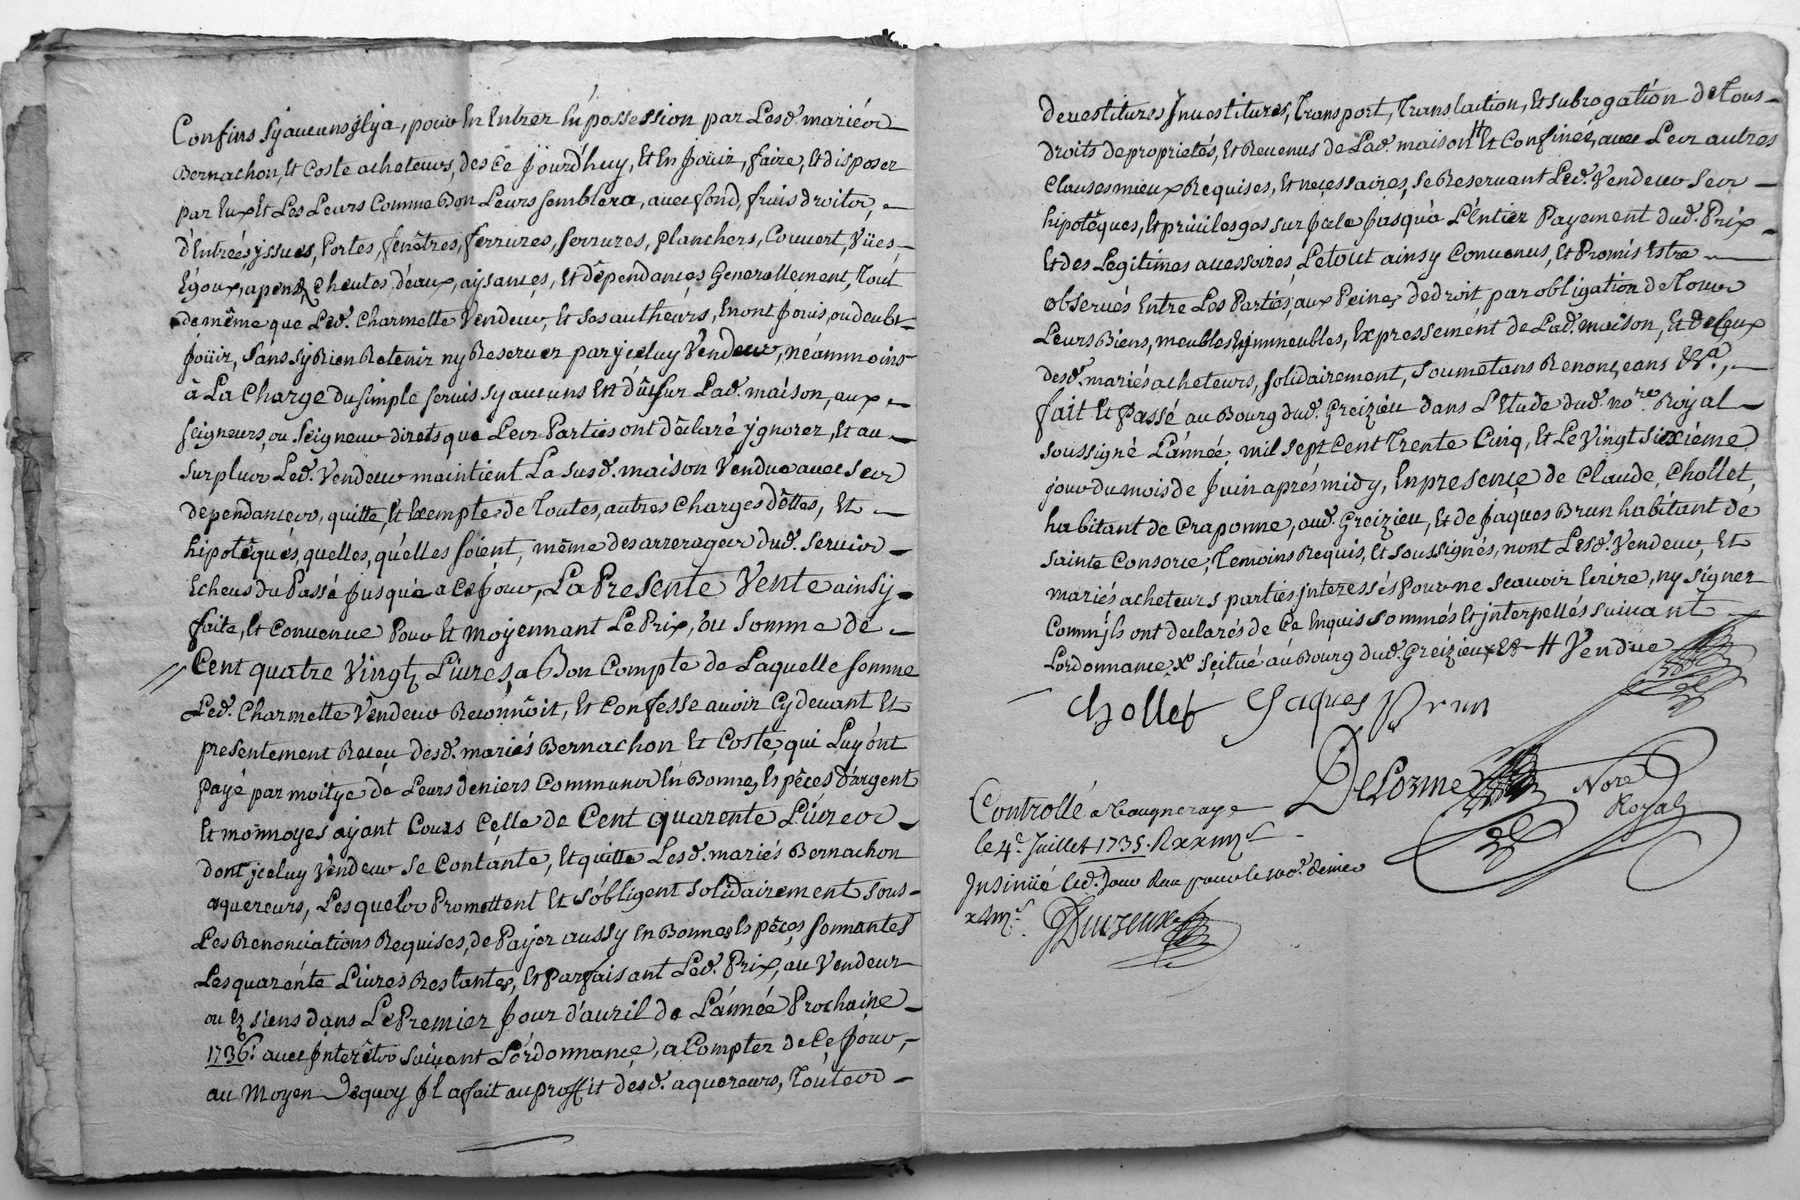 Confins sy aucuns Jlya, pour En Entrer En possession par Lesd. mariéz
Bernachon, Et Coste acheteurs, des Ce Jourd'huy, Et En Joüir, faire, Et disposer
par Eux Et Les Leurs Comme Bon Leurs semblera, avec fond, fruis droitz,
d'Entrées, yssues, Portes, fenêtres, ferrures, serrures, planchers, Couvert, Vües,
Egoux, apens, Cheutes d'éaux, aysances, Et dêpendances Generallement, Tout
de même que Led. Charmette Vendeur, Et ses autheurs, En ont Joüis, ou deube
Joüir, sans sy Rien Retenir ny Reserver par yceluy Vendeur, néammoins
à La Charge du simple servis sy aucuns Est dû sur Lad. maison, aux
seigneurs, ou seigneur direts que Leds Parties ont dêclaré ygnorer, Et au
surplus Led. Vendeur maintient La susd. maison Vendue avec ses
dependances, quitte, Et Exempte de Toutes, autres Charges dêttes, Et
hipotêques, quelles, qu'elles soient, même des arrerages dud. servis
Echeus du Passé Jusqu'a a Ce Jour, La Presente Vente ainsy
faite, Et Convenue Pour Et moyennant Le Prix, ou somme de
Cent quatre Vingt Livres, a Bon Compte de Laquelle somme
Led. Charmette Vendeur Reconnôit, Et Confesse avoir Cy devant Et
presentement Receu desd. mariés Bernachon Et Coste, qui Luy ont
Payé par moitye de Leurs deniers Communs En Bonnes Espêces d'argent
Et monnoyes ayant Cours Celle de Cent quarente Livres
dont yceluy Vendeur se Contante, Et quitte Lesd. mariés Bernachon
aquereurs, Lesquels Promettent Et s'obligent solidairement sous
Les Renonciations Requises, de Payer aussy En Bonnes Espêces sonnantes
Les quarente Livres Restantes, Et Parfaisant Led. Prix, au Vendeur
ou Ez siens dans Le Premier Jour d'avril de L'année Prochaine
1736. avec Interêts suivant L'ordonnance, a Compter de Ce Jour,
au Moyen Dequoy Jl a fait au proffit desd. aquereurs, Toutes
devestitures Investitures, Transport, Translaction, Et subrogation de Tous
droits de proprietés, Et Revenus de Lad. maison # Et Confinée, avec Les autres
Clauses mieux Requises, Et necessaires, se Reservant Led. Vendeur ses
hipotêques, Et privileges sur Jcele Jusqu'a L'Entier Payement dud. Prix
Et des Legitimes accessoires, Le tout ainsy Convenus, Et Promis Estre
observés Entre Les Parties, aux Peines de droit par obligation de Tous
Leurs Biens, meubles Et immeubles, Expressemént de Lad. maison, Et de Ceux
desd. mariés acheteurs, solidairement, soumetans Renonçeans &a.,
fait Et Passé au Bourg dud. Greizieu dans L'Etude dud. nore. Royal
soussigné L'année mil sept Cent Trente Cinq, Et Le Vingt sixiéme
jour du mois de Juin aprés midy, En presence de Claude Chollet,
habitant de Craponne, aud. Greizieu, Et de Jaques Brun habitant de
sainte Consorce, Temoins Requis, Et soussignés, nont Lesd. Vendeur, Et
mariés acheteurs parties jnteressés Pour ne scavoir Ecrire, ny signer
Comm'jls ont declarés de Ce Enquis sommés Et jnterpellés suivant
L'ordonnance, x° scitué au Bourg dud. Greizieu x Et # Vendue
Chollet Jaques Brun
DeLorme Nore
Royal
Controllé a Vaugneraye
le 4e. Juillet 1735. R xxiiij s
Insinüé led. Jour Reçu pour le 100e. denier
DuCreux